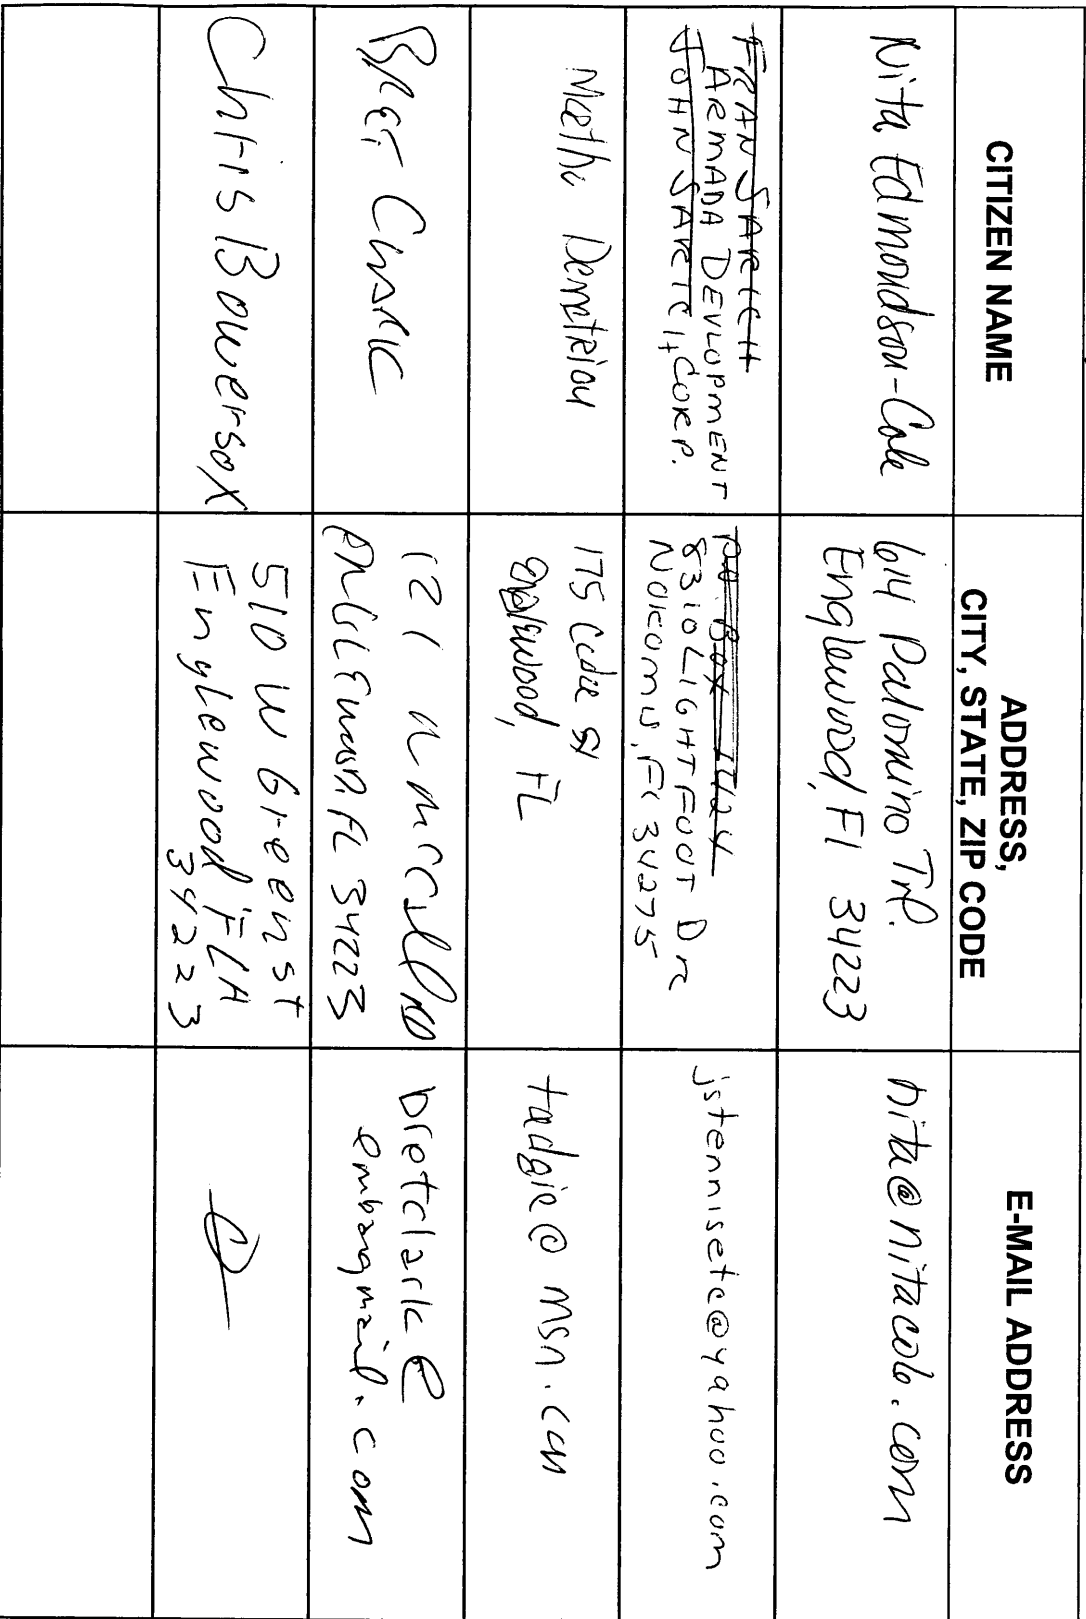 CITIZEN NAME
ADDRESS,
CITY, STATE, ZIP CODE
E-MAIL ADDRESS
Nita Edmondson-Cole
614 Palomino Trl.
Englewood, Fl 34223
nita@nitacole.com
FRAN SARICH
ARMADA DEVLOPMENT
JOHN SARICH, CORP.
P.O. BOX 1424
8310 LIGHTFOOT DR
NOKOMIS, FL 34275
jstennisetc@yahoo.com
Martha Demetriou
175 Cedar St
Englewood, FL
tadgie@msn.com
BRET CLARK
121 N McCall RD
ENGLEWOOD, FL 34223
bretclark@
embarqmail.com
Chris Bowersox
510 W Green st
Englewood FLA
34223